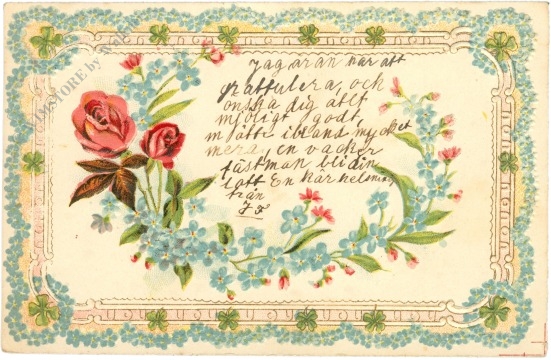 Jag äran har att
grattulera, och
önska dig allt
mjöligt godt,
måtte ibland mycket
mera, en vacker
fästman bli din
lått En kär helsning
från
J F